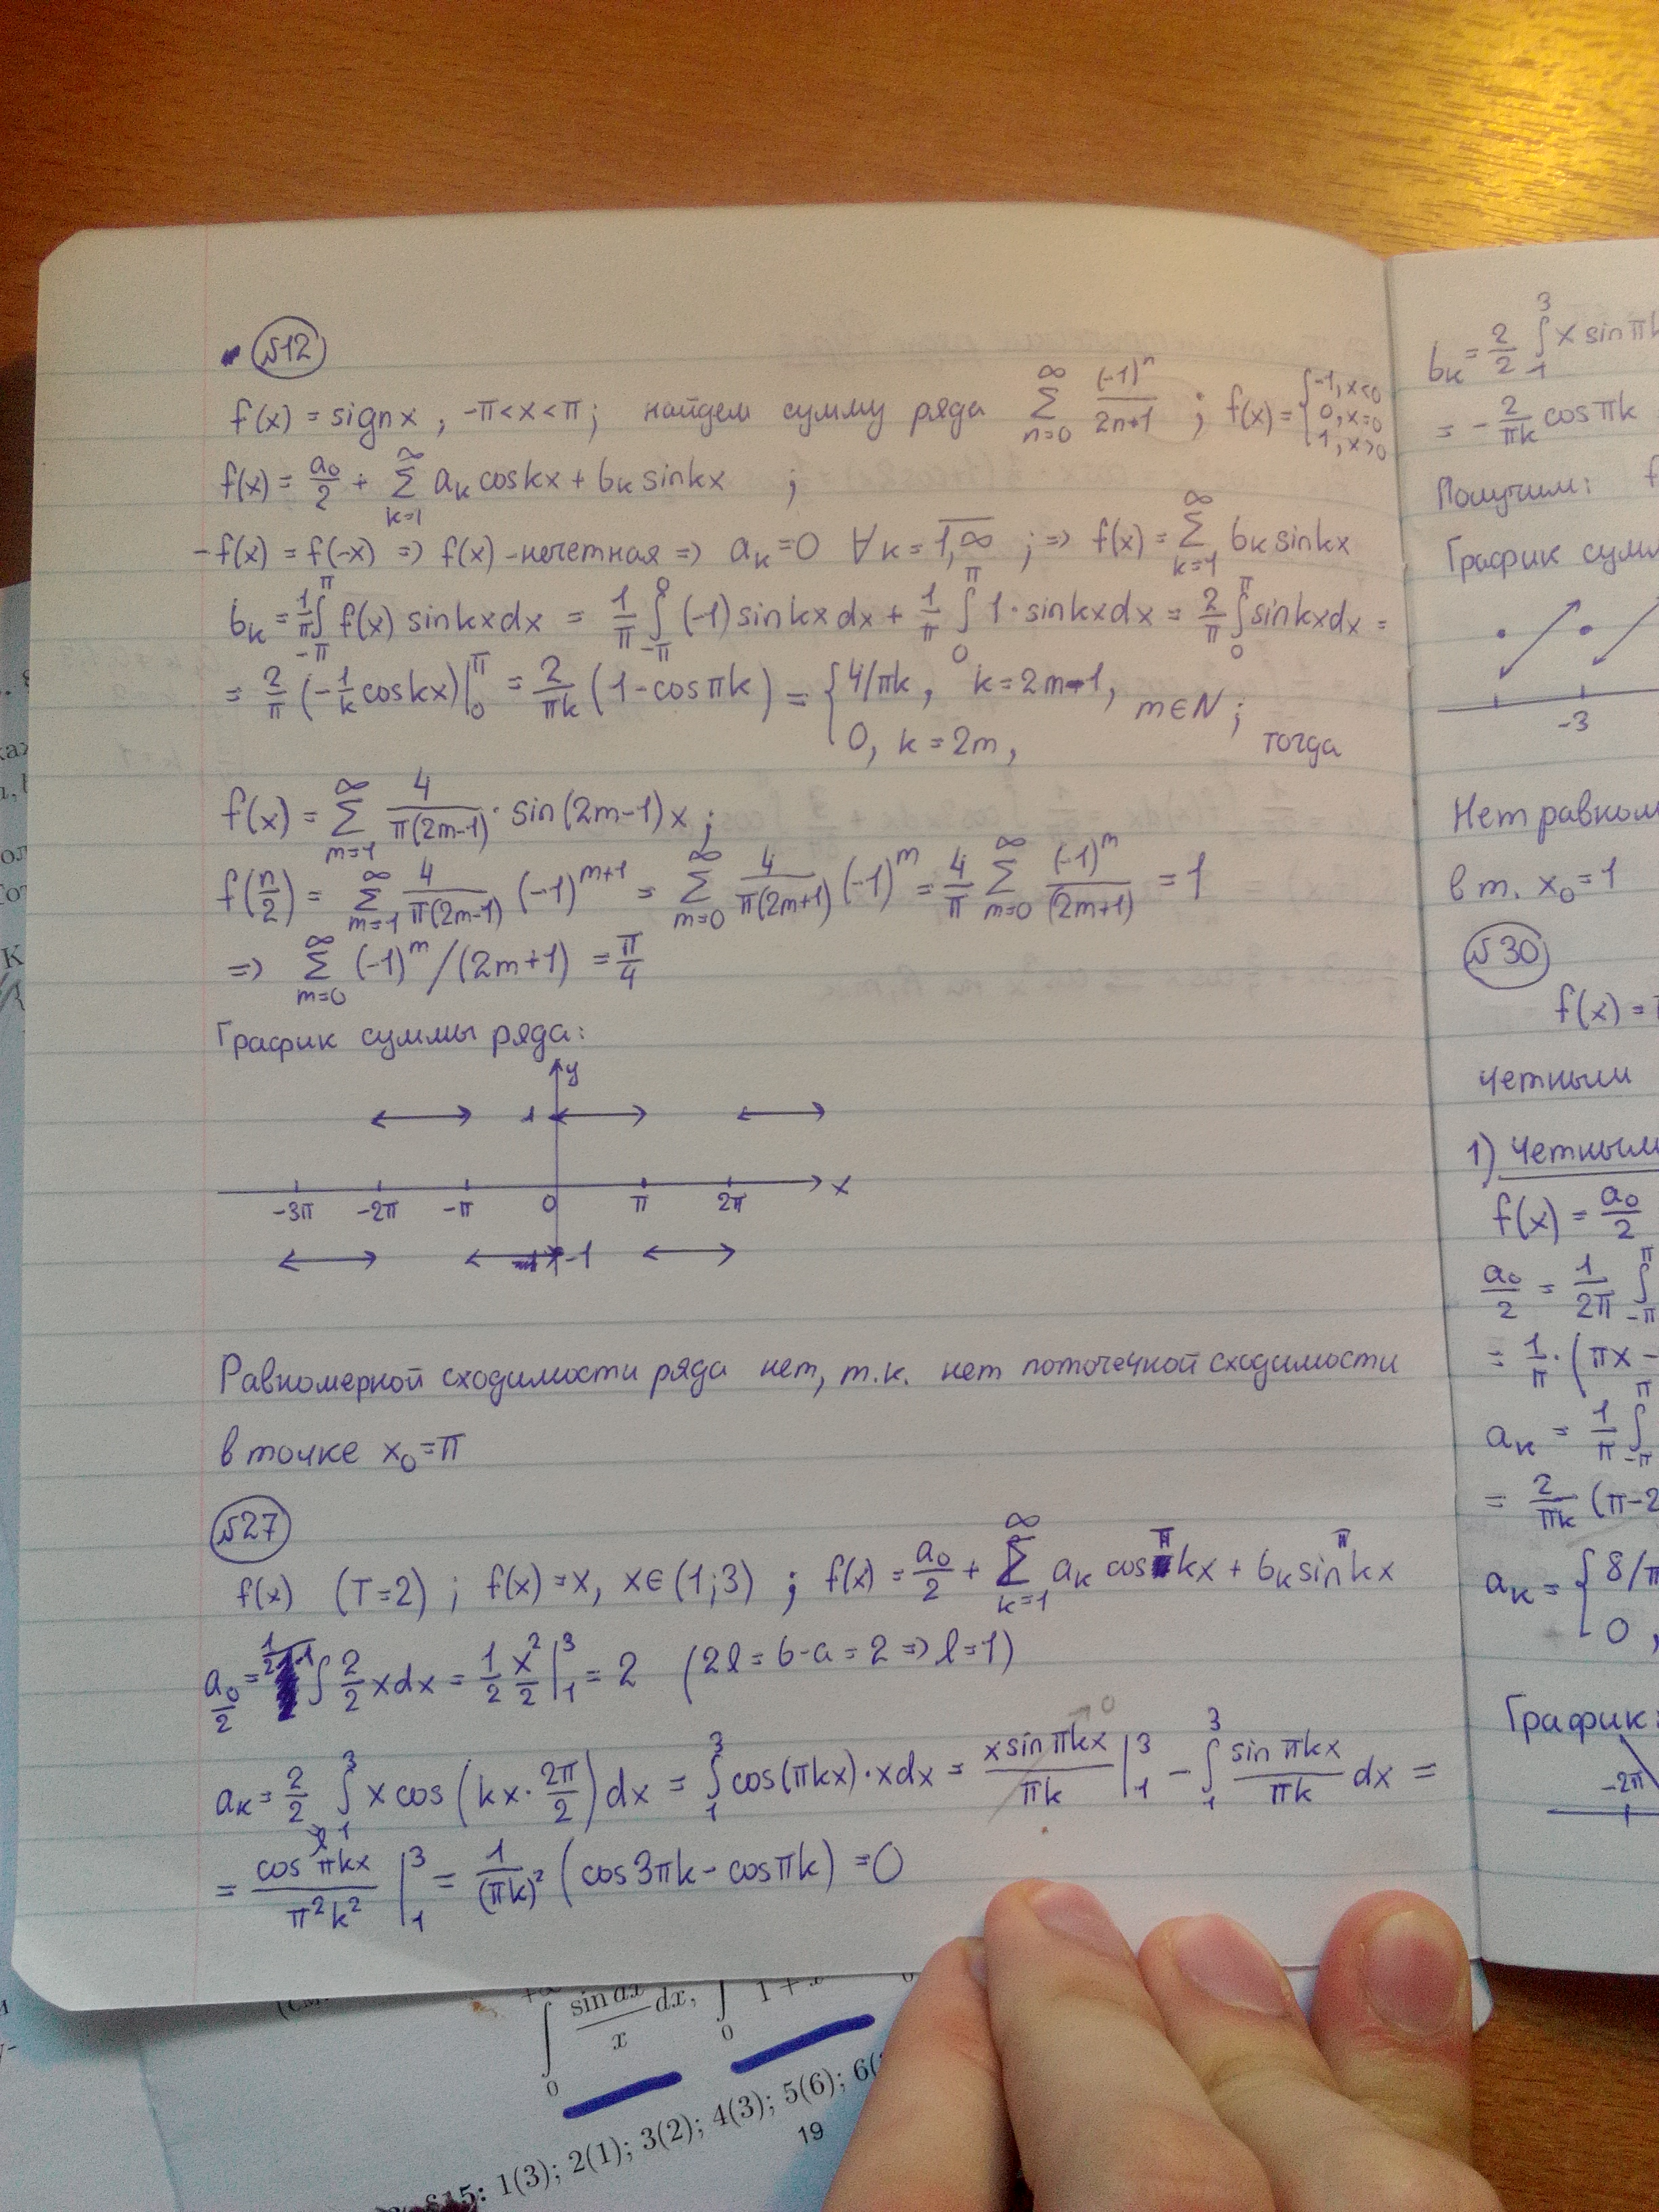 №12
f(x) = sign x , -π<x<π; найдем сумму ряда ∑_{n=0}^{∞} (-1)^n/(2n+1) ; f(x)={-1, x<0; 0, x=0; 1, x>0
f(x) = a₀/2 + ∑_{k=1}^{∞} a_k cos kx + b_k sin kx ;
-f(x) = f(-x) => f(x) - нечетная => a_k = 0 ∀k = \overline{1,∞} ; => f(x) = ∑_{k=1}^{∞} b_k sin kx
b_k = 1/π ∫_{-π}^{π} f(x) sin kx dx = 1/π ∫_{-π}^{0} (-1) sin kx dx + 1/π ∫_{0}^{π} 1·sin kx dx = 2/π ∫_{0}^{π} sin kx dx =
= 2/π (-1/k cos kx)|_0^π = 2/(πk) (1 - cos πk) = { 4/πk, k = 2m-1, 0, k = 2m, m∈N; тогда
f(x) = ∑_{m=1}^{∞} 4/(π(2m-1)) · sin(2m-1)x ;
f(π/2) = ∑_{m=1}^{∞} 4/(π(2m-1)) (-1)^{m+1} = ∑_{m=0}^{∞} 4/(π(2m+1)) (-1)^m = 4/π ∑_{m=0}^{∞} (-1)^m/(2m+1) = 1
=> ∑_{m=0}^{∞} (-1)^m/(2m+1) = π/4
График суммы ряда:
y
1
-3π -2π -π 0 π 2π x
-1
Равномерной сходимости ряда нет, т.к. нет поточечной сходимости
в точке x₀=π
№27
f(x) (T=2) ; f(x)=x, x∈(1;3) ; f(x) = a₀/2 + ∑_{k=1}^{∞} a_k cos πkx + b_k sin πkx
a₀/2 = 1/2·1 ∫ 2/2 x dx = 1/2 x²/2 |_1^3 = 2 (2l = b-a = 2 => l=1)
a_k = 2/2 ∫_1^3 x cos(kx · 2π/2) dx = ∫_1^3 cos(πkx)·x dx = x sin πkx/πk |_1^3 - ∫_1^3 sin πkx/πk dx =
= cos πkx/π²k² |_1^3 = 1/(πk)² (cos 3πk - cos πk) = 0
b_k = 2/2 ∫_1^3 x sin π
= - 2/πk cos πk
Получим:
График
-3
Нет
в т. x₀=1
№30
f(x) =
четным
1) Четным
f(x) = a₀/2
a₀/2 = 1/2π ∫_{-π}^{π}
= 1/π · (πx -
a_k = 1/π ∫_{-π}^{π}
= 2/πk (π-2
a_k = { 8/π
0 ,
График:
-2π
∫_0 sin αx/x dx, ∫_0 1 +
1(3); 2(1); 3(2); 4(3); 5(6);
19
§15: